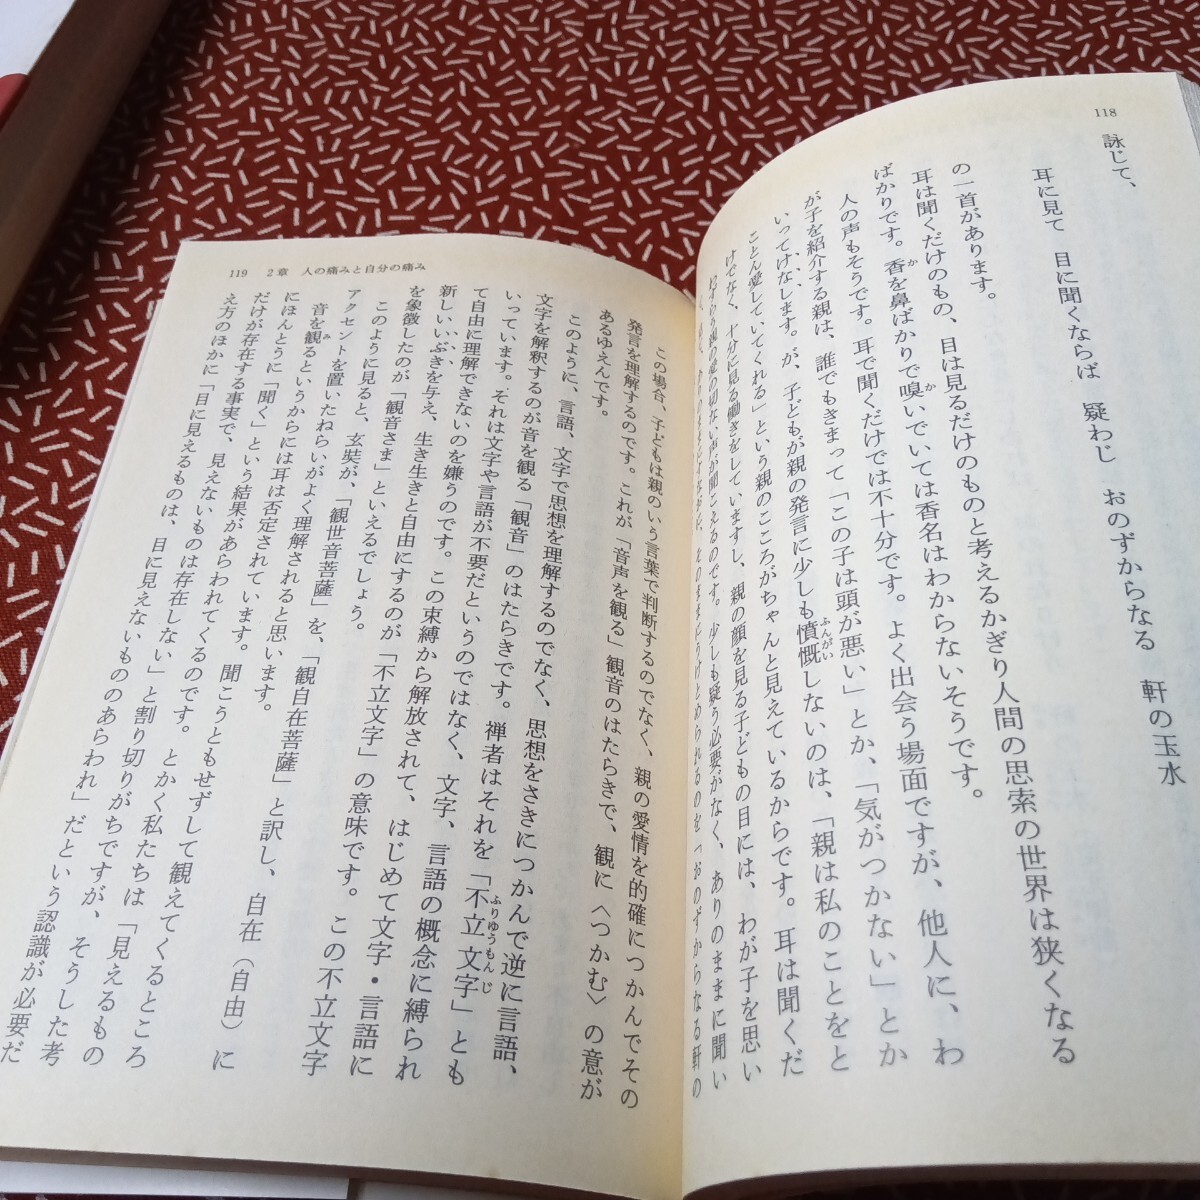 118
詠じて、
耳に見て 目に聞くならば 疑わじ おのずからなる 軒の玉水
の一首があります。
耳は聞くだけのもの、目は見るだけのものと考えるかぎり人間の思索の世界は狭くなる
ばかりです。香を鼻ばかりで嗅いでいては香名はわからないそうです。
人の声もそうです。耳で聞くだけでは不十分です。よく出会う場面ですが、他人に、わ
が子を紹介する親は、誰でもきまって「この子は頭が悪い」とか、「気がつかない」とか
いってけなします。が、子どもが親の発言に少しも憤慨しないのは、「親は私のことをと
ことん愛していてくれる」という親のこころがちゃんと見えているからです。耳は聞くだ
けでなく、十分に見る働きをしていますし、親の顔を見る子どもの目には、わが子を思い
119 2章 人の痛みと自分の痛み
この場合、子どもは親のいう言葉で判断するのでなく、親の愛情を的確につかんでその
発言を理解するのです。これが「音声を観る」観音のはたらきで、観に〈つかむ〉の意が
あるゆえんです。
このように、言語、文字で思想を理解するのでなく、思想をさきにつかんで逆に言語、
文字を解釈するのが音を観る「観音」のはたらきです。禅者はそれを「不立文字」とも
いっています。それは文字や言語が不要だというのではなく、文字、言語の概念に縛られ
て自由に理解できないのを嫌うのです。この束縛から解放されて、はじめて文字・言語に
新しいいぶきを与え、生き生きと自由にするのが「不立文字」の意味です。この不立文字
を象徴したのが「観音さま」といえるでしょう。
このように見ると、玄奘が、「観世音菩薩」を、「観自在菩薩」と訳し、自在（自由）に
アクセントを置いたねらいがよく理解されると思います。
音を観るというからには耳は否定されています。聞こうともせずして観えてくるところ
にほんとうに「聞く」という結果があらわれてくるのです。とかく私たちは「見えるもの
だけが存在する事実で、見えないものは存在しない」と割り切りがちですが、そうした考
え方のほかに「目に見えるものは、目に見えないもののあらわれ」だという認識が必要だ